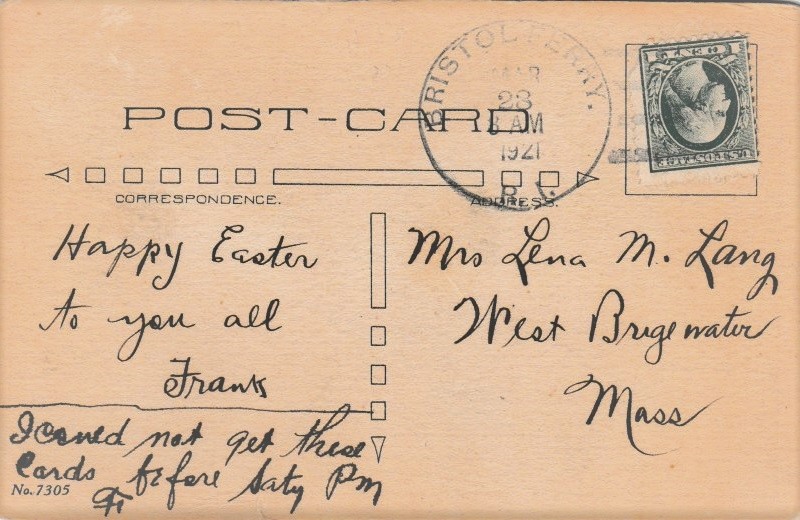 BRISTOL FERRY.
MAR
28
8 AM
1921
R.I.
1 CENT 1
U.S. POSTAGE
POST-CARD
CORRESPONDENCE.
ADDRESS.
Happy Easter
to you all
Frank
I couued not get these
Cards before Saty Pm
F
No. 7305
Mrs Lena M. Lang
West Brigewater
Mass